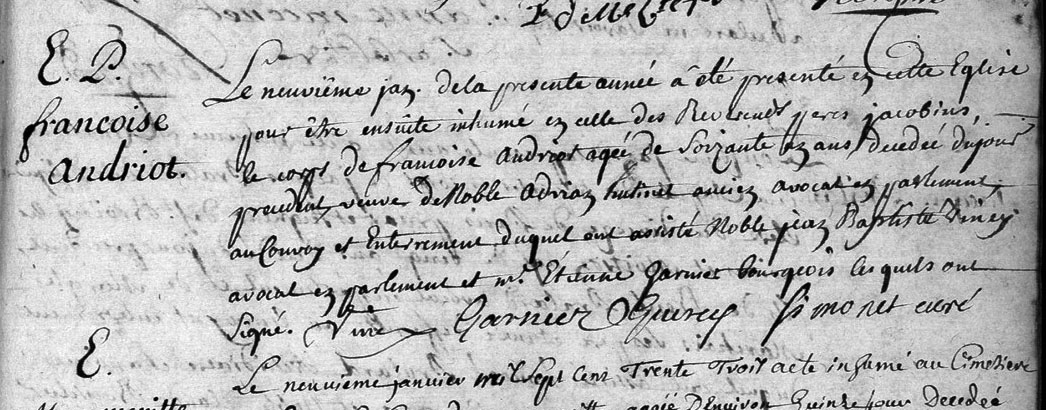 E. P.
francoise
andriot.
Le neuvième jan. de la presente année à été presenté en cette Eglise
pour être ensuite inhumé en celle des Reverends peres jacobins,
le corps de francoise Andriot agée de Soixante ans, decedée du jour
precedent, veuve de Noble Adrian ancien avocat en parlement,
au Convoy et Enterrement duquel ont assisté Noble jean Baptiste
avocat en parlement et mr. Etienne Garnier bourgeois lesquels ont
Signé. Garnier Simonet curé
E.
Le neuvième janvier mil Sept Cens Trente Trois acte inhumé au Cimetiere
agée D'Environ Quinze jour Decedée